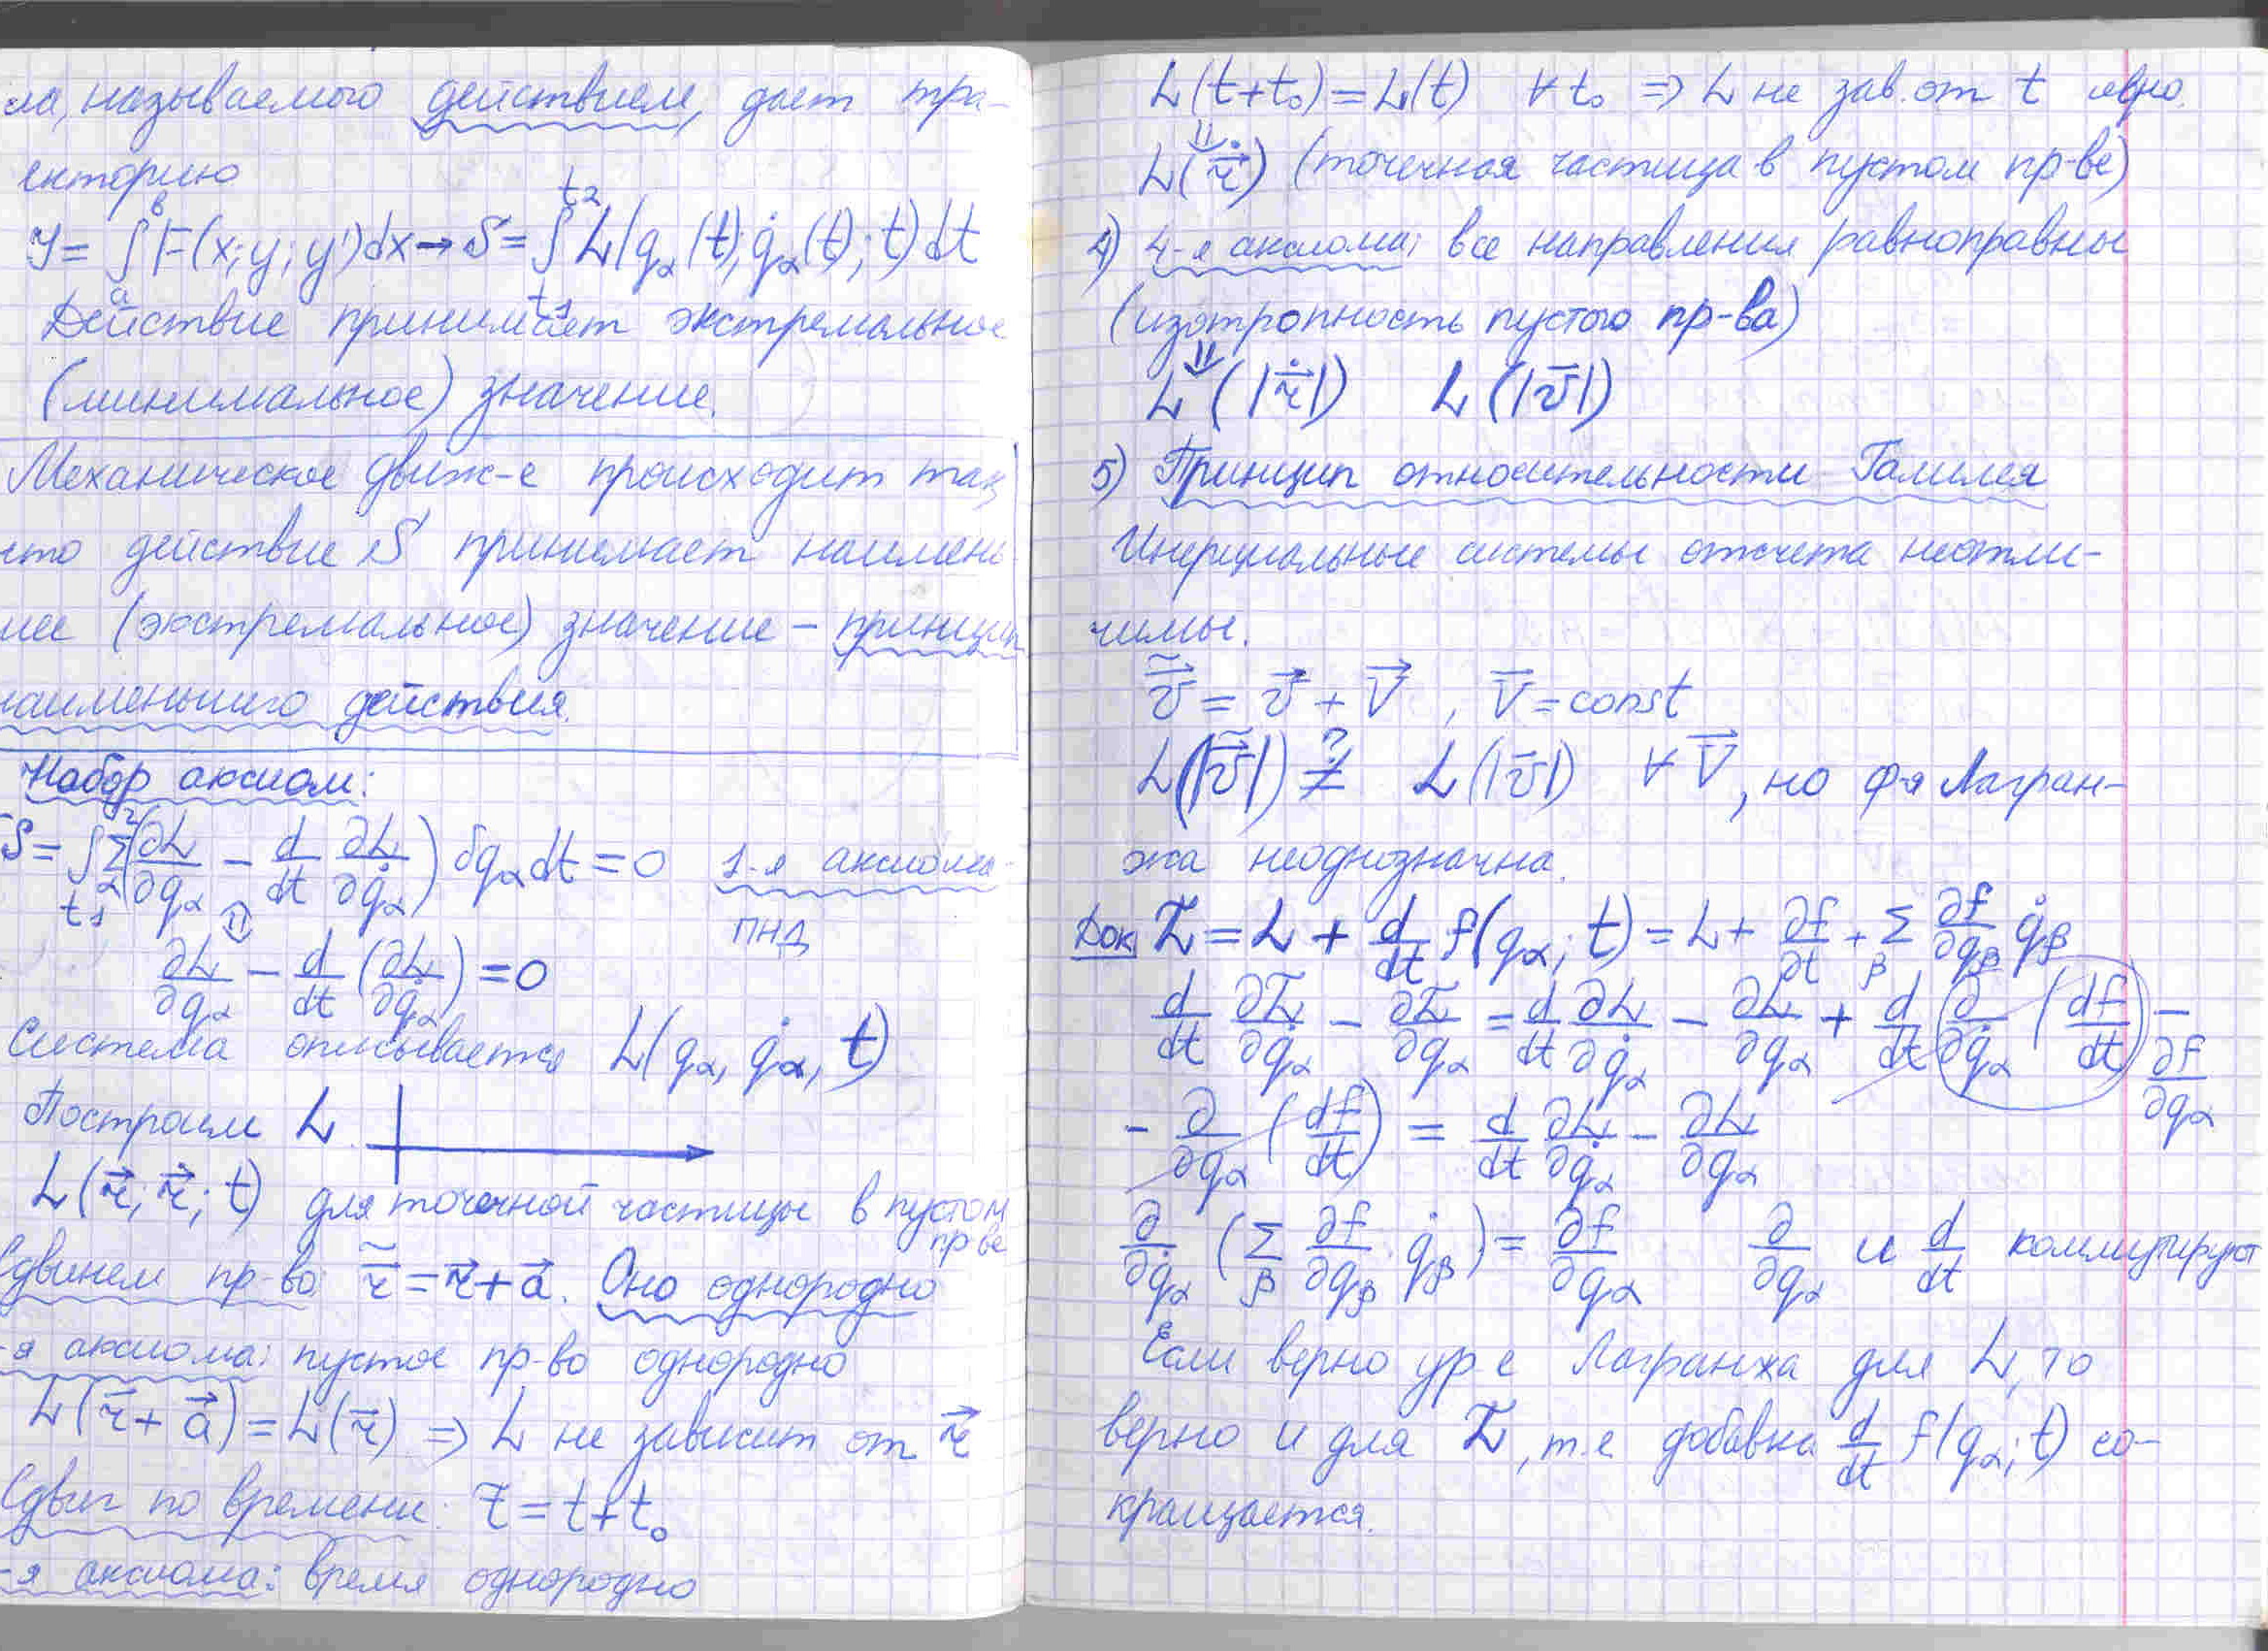 ла, называемого действием, дает тра-
екторию
J = ∫ₐᵇ F(x; y; y')dx → S = ∫ₜ₁ᵗ² L(qα(t); q̇α(t); t)dt
Действие принимает экстремальное
(минимальное) значение.
Механическое движ-е происходит так,
что действие S принимает наимень-
шее (экстремальное) значение – принцип
наименьшего действия.
Набор аксиом:
S = ∫ₜ₁ᵗ² Σα (∂L/∂qα − d/dt ∂L/∂q̇α) δqα dt = 0 1-я аксиома-
ПНД
⇓
∂L/∂qα − d/dt (∂L/∂q̇α) = 0
Система описывается L(qα, q̇α, t)
Построим L
L(r⃗; r⃗̇; t) для точечной частицы в пустом
пр-ве
Сдвинем пр-во: r⃗̃ = r⃗ + a⃗. Оно однородно
-я аксиома: пустое пр-во однородно
L(r⃗ + a⃗) = L(r⃗) ⇒ L не зависит от r⃗
Сдвиг по времени: t̃ = t + t₀
-я аксиома: время однородно
L(t+t₀) = L(t) ∀ t₀ ⇒ L не зав. от t явно.
⇓
L(r⃗̇) (точечная частица в пустом пр-ве)
4) 4-я аксиома: все направления равноправны
(изотропность пустого пр-ва)
⇓
L(|r⃗̇|) L(|v̄|)
5) Принцип относительности Галилея
Инерциальные системы отсчета неотли-
чимы.
v⃗̃ = v⃗ + V⃗, V̄ = const
L(|v⃗̃|) ≠? L(|v̄|) ∀ V⃗, но ф-я Лагран-
жа неоднозначна.
Док. L̃ = L + d/dt f(qα; t) = L + ∂f/∂t + Σβ ∂f/∂qβ q̇β
d/dt ∂L̃/∂q̇α − ∂L̃/∂qα = d/dt ∂L/∂q̇α − ∂L/∂qα + d/dt ∂/∂q̇α (df/dt) −
∂f/∂qα
− ∂/∂qα (df/dt) = d/dt ∂L/∂q̇α − ∂L/∂qα
∂/∂q̇α (Σβ ∂f/∂qβ q̇β) = ∂f/∂qα ∂/∂qα и d/dt коммутируют
Если верно ур-е Лагранжа для L, то
верно и для L̃, т.е добавка d/dt f(qα; t) со-
кращается.